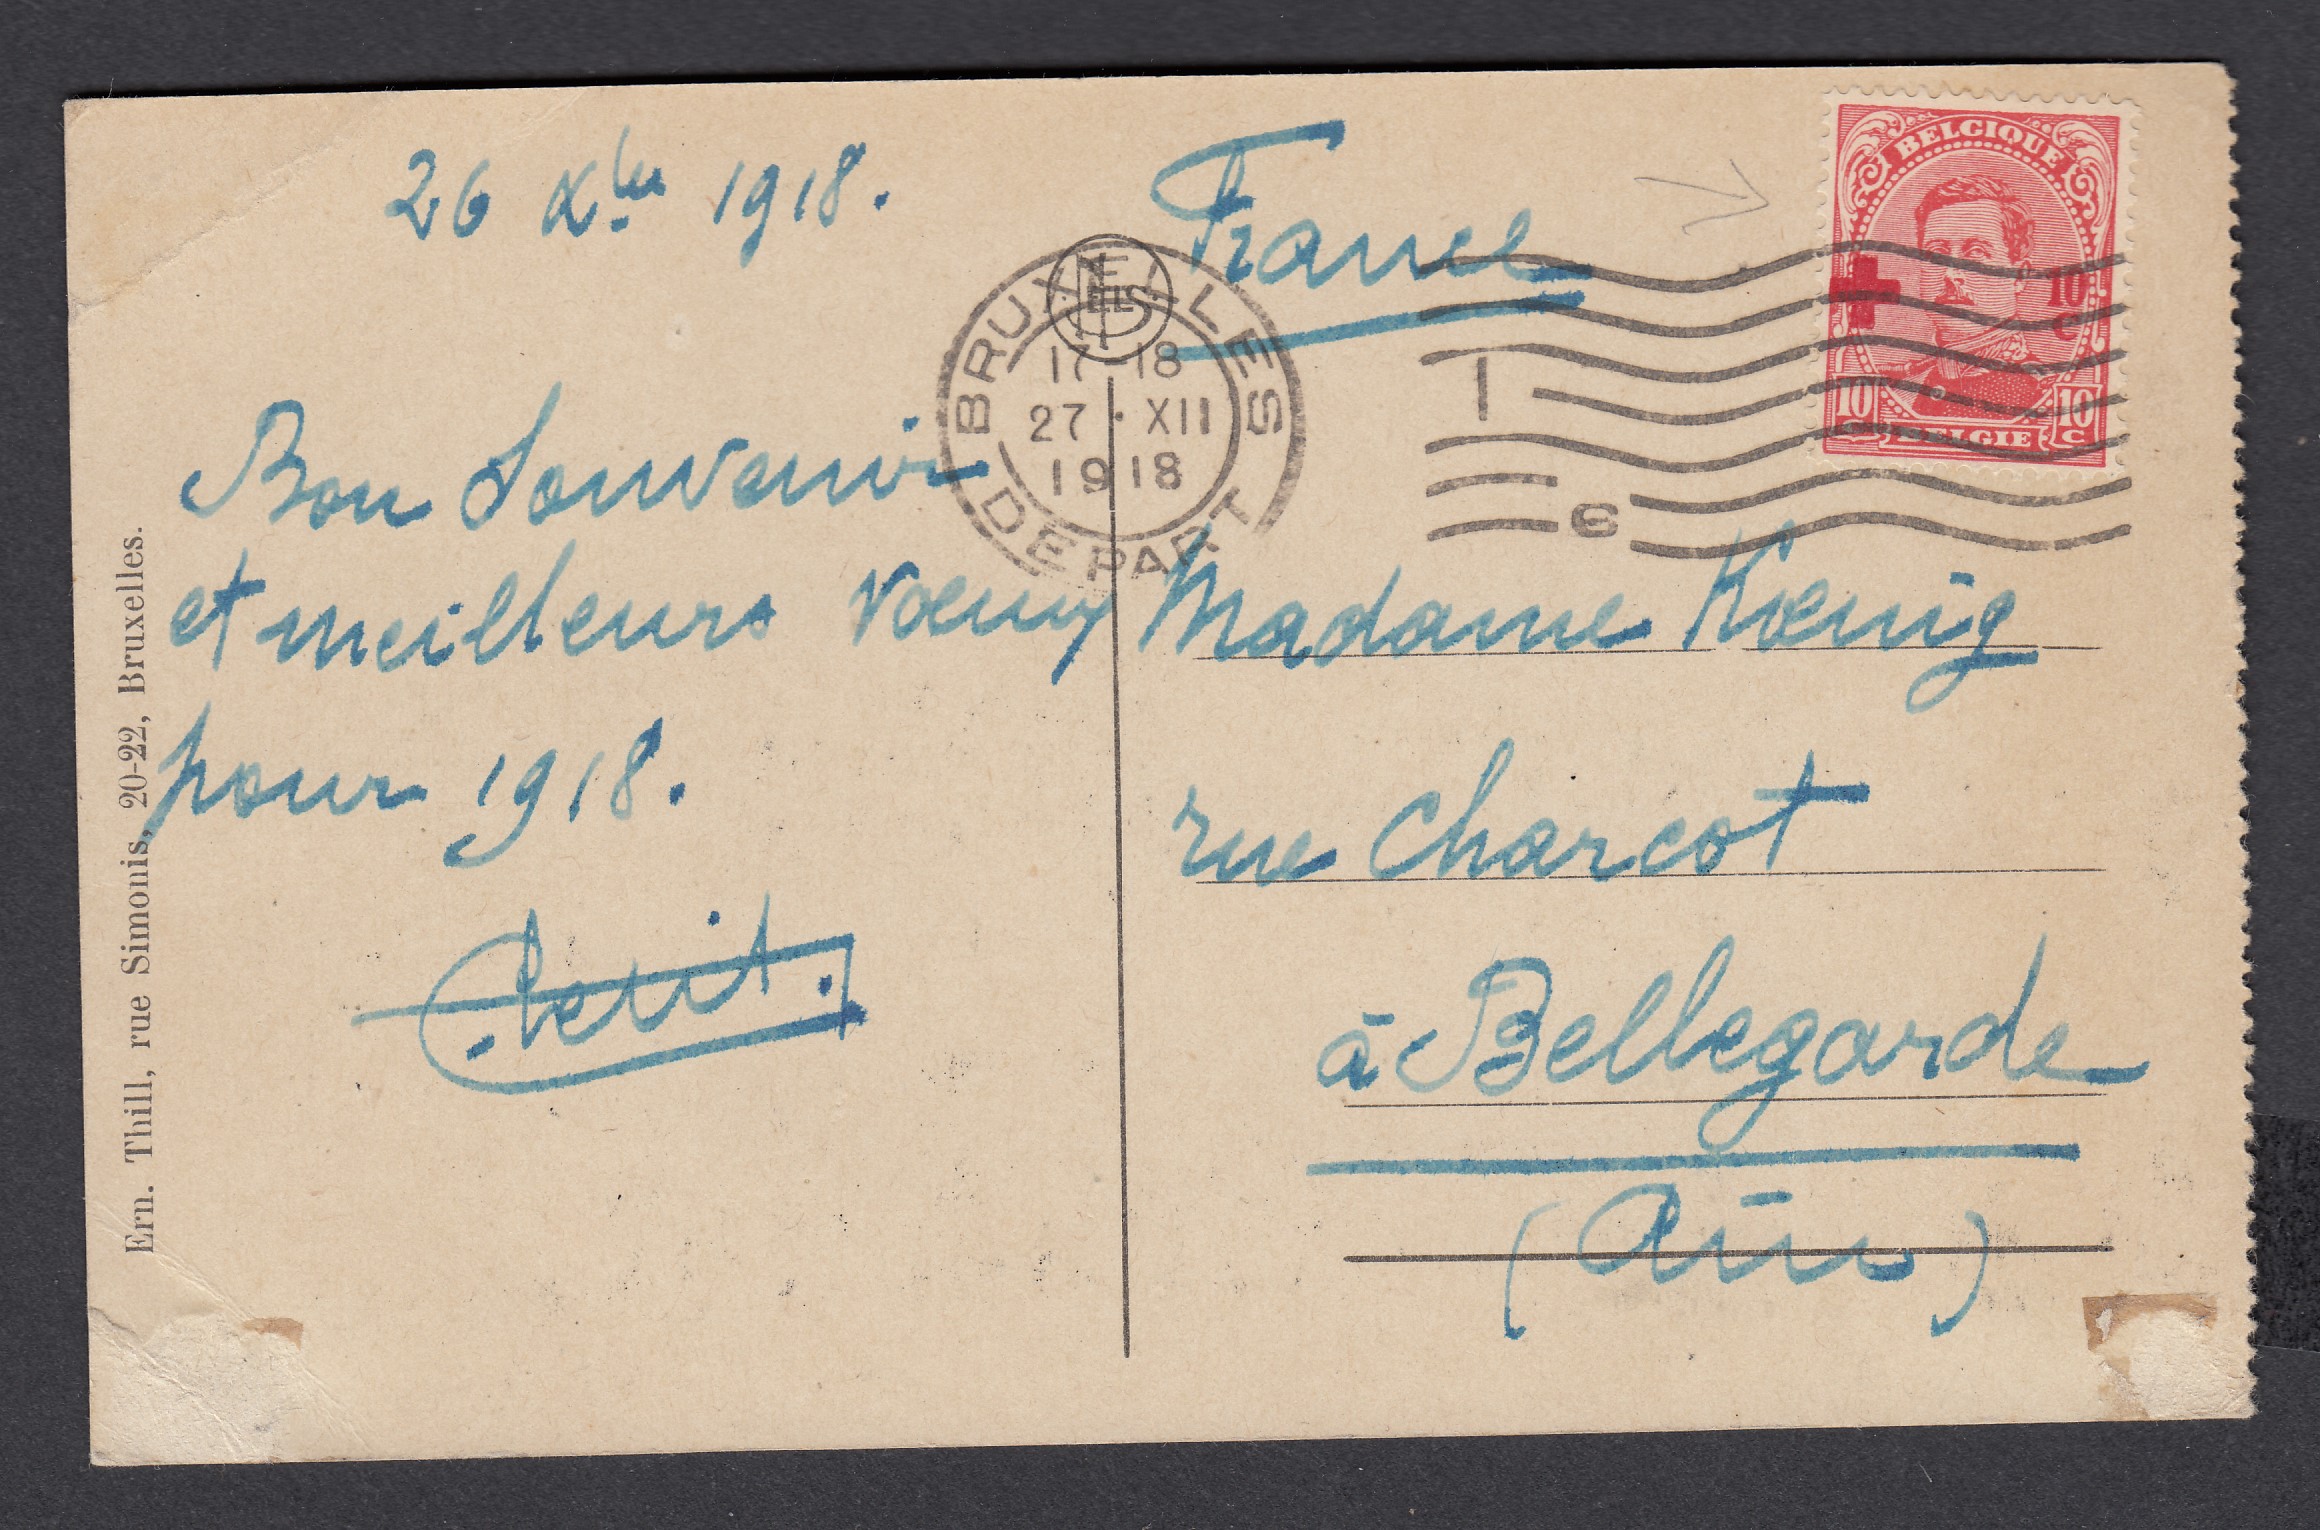 26 Xbre 1918.
Bon Souvenir
et meilleurs vœux
pour 1918.
France
Madame Kœnig
rue Charcot
à Bellegarde
(Ain)
BRUXELLES
17-18
27 · XII
1918
DEPART
1
6
BELGIQUE
10
c
10 10
C C
BELGIE
Ern. Thill, rue Simonis, 20-22, Bruxelles.